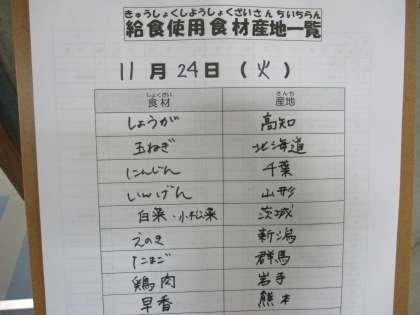 きゅうしょくしようしょくざいさんちいちらん
給食使用食材産地一覧
11月24日(火)
しょくざい さんち
食材 産地
しょうが 高知
玉ねぎ 北海道
にんじん 千葉
いんげん 山形
白菜・小松菜 茨城
えのき 新潟
たまご 群馬
鶏肉 岩手
早香 熊本